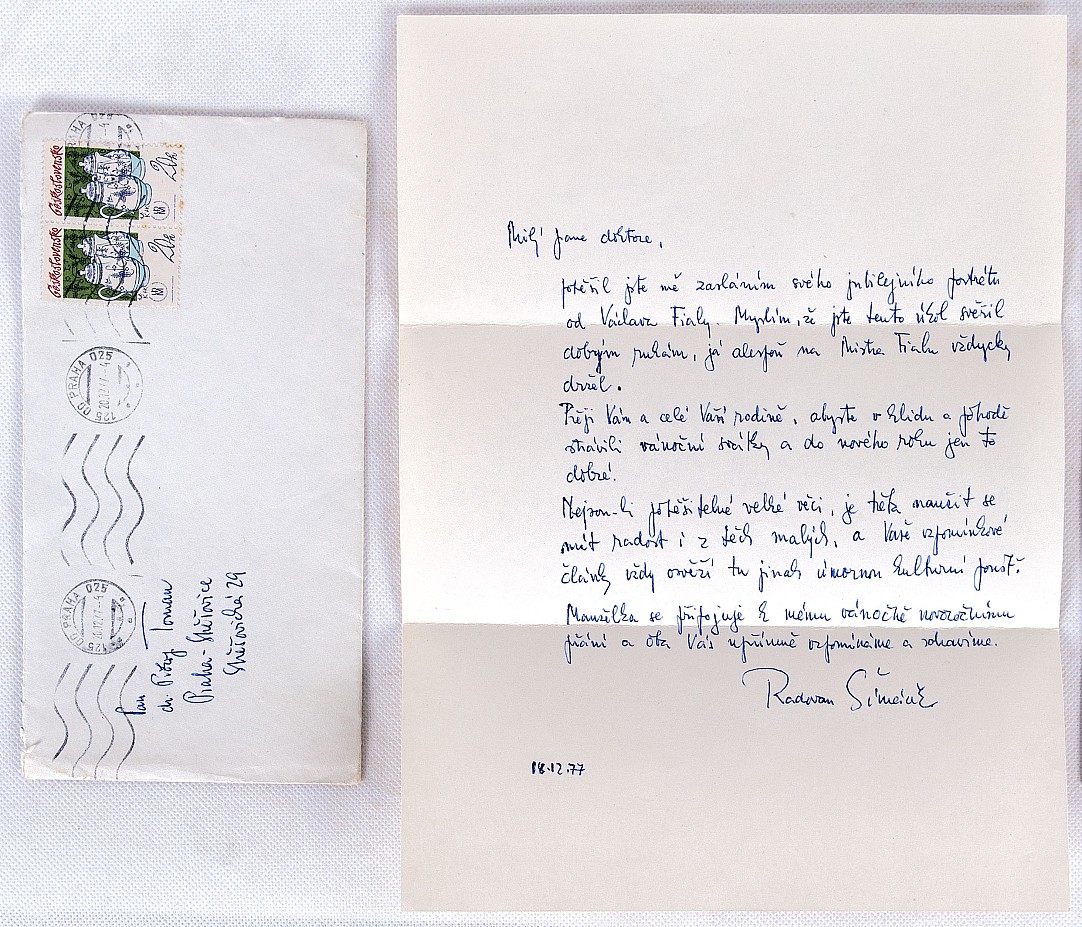 Československo
20h
Československo
20h
PRAHA 025
125 00 PRAHA 025
20.12.77-4
125 00 PRAHA 025
20.12.77-4
Pan
dr. Prokop Toman
Praha-Střešovice
Střešovická 29
Milý pane doktore,
potěšil jste mě zasláním svého jubilejního portrétu
od Václava Fialy. Myslím, že jste tento úkol svěřil
dobrým rukám, já alespoň na Mistra Fialu vždycky
držel.
Přeji Vám a celé Vaší rodině, abyste v klidu a pohodě
strávili vánoční svátky a do nového roku jen to
dobré!
Nejsou-li potěšitelné velké věci, je třeba naučit se
mít radost i z těch malých, a Vaše vzpomínkové
články vždy osvěží tu jinak úmornou kulturní poušť.
Manželka se připojuje k mému vánočně novoročnímu
přání a oba Vás upřímně vzpomínáme a zdravíme.
Radovan Šimáček
18.12.77